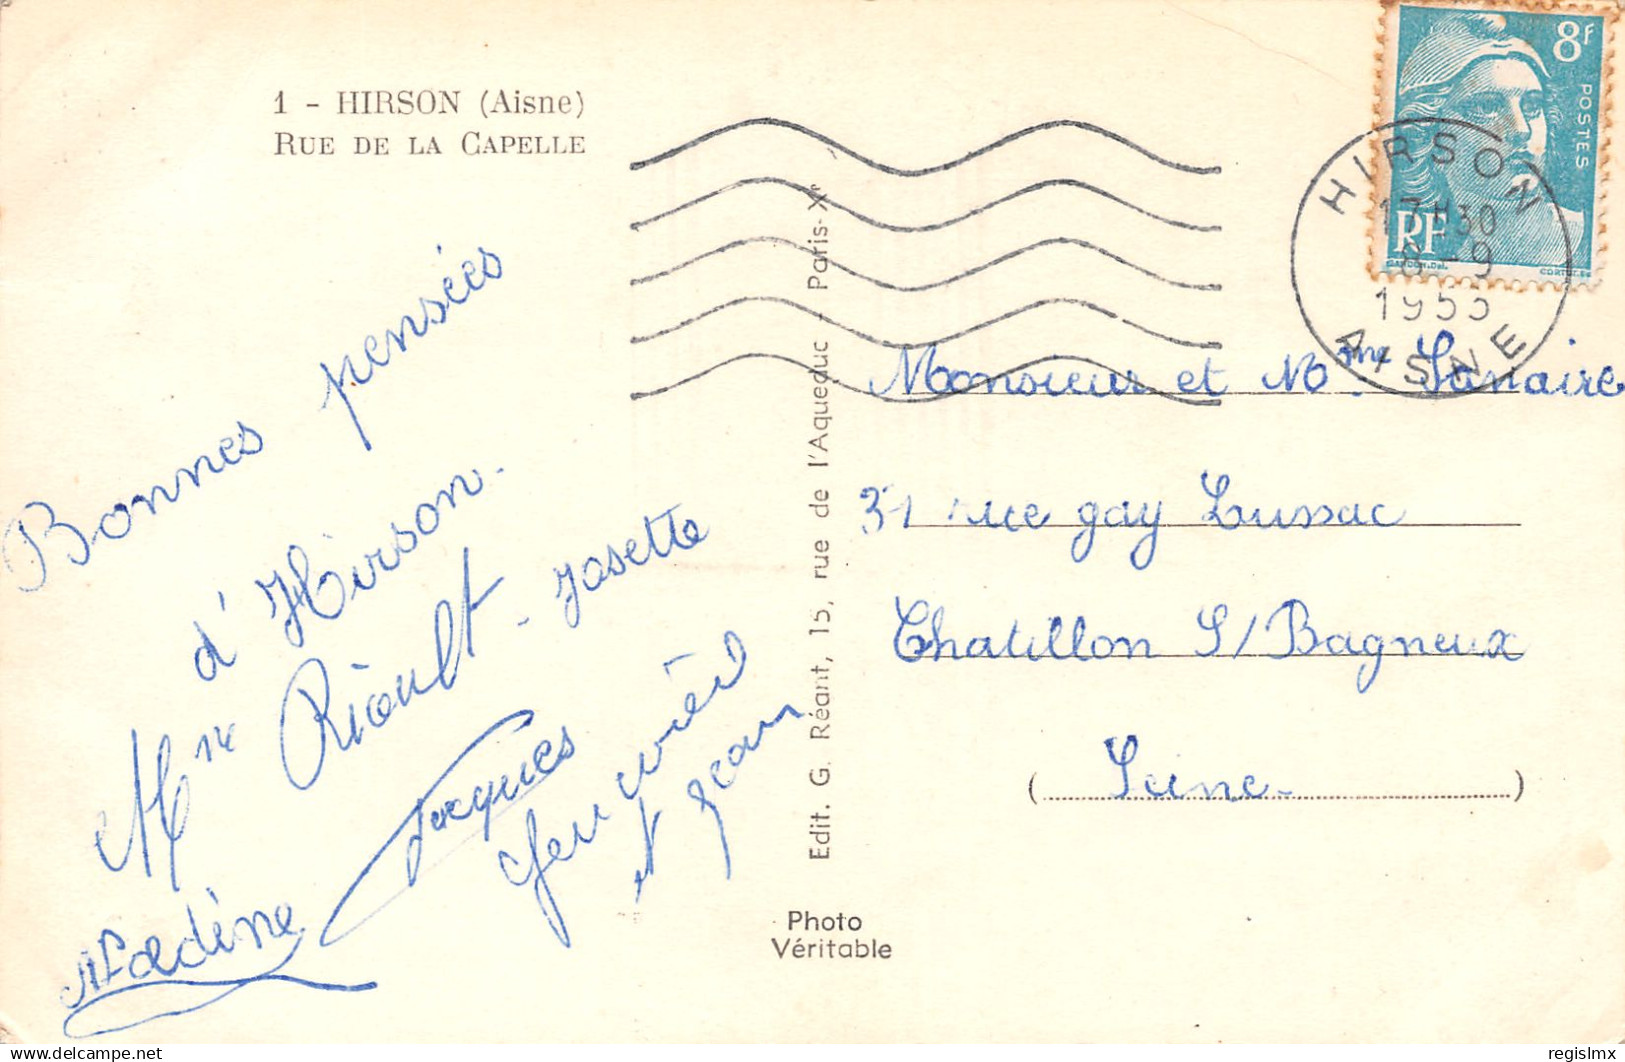 1 - HIRSON (Aisne)
RUE DE LA CAPELLE
Bonnes pensées
d'Hirson.
Mme Riault. Josette
Jacques
Geneviève
et Jean
Nadine
Edit. G. Réant, 15, rue de l'Aqueduc - Paris-Xe
Photo
Véritable
8f
POSTES
RF
HIRSON
17H30
8-9
1953
AISNE
Monsieur et Mme Lanaire
31 rue gay Lussac
Chatillon S/Bagneux
(Seine)
regislmx